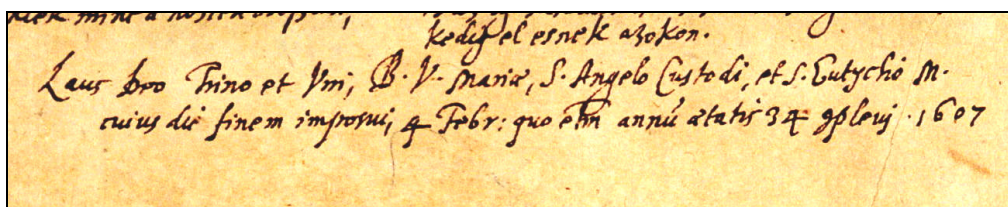 kedig el esnek azokon.
Laus Deo Trino et Vni, B. V. Mariæ, S. Angelo Custodi, et S. Eutychio M.
cuius die finem imposui, 4 Febr: quo etm annũ ætatis 34 ꝯpleui. 1607